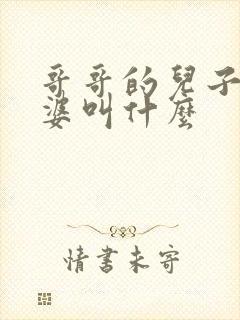 哥哥的兒子
婆叫什麼
情書未寄